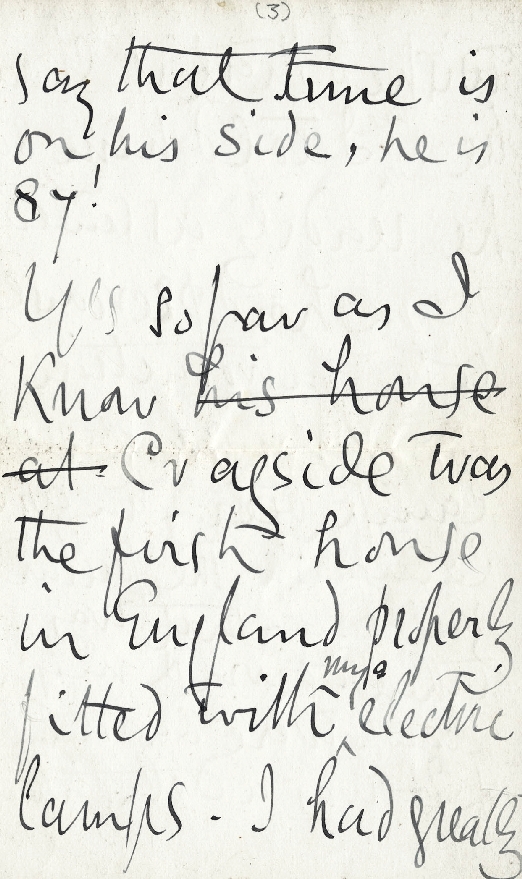 (3)
say that time is
on his side, he is
87!
Yes so far as I
know his house
at Cragside was
the first house
in England properly
fitted with my electric
lamps - I had greatly